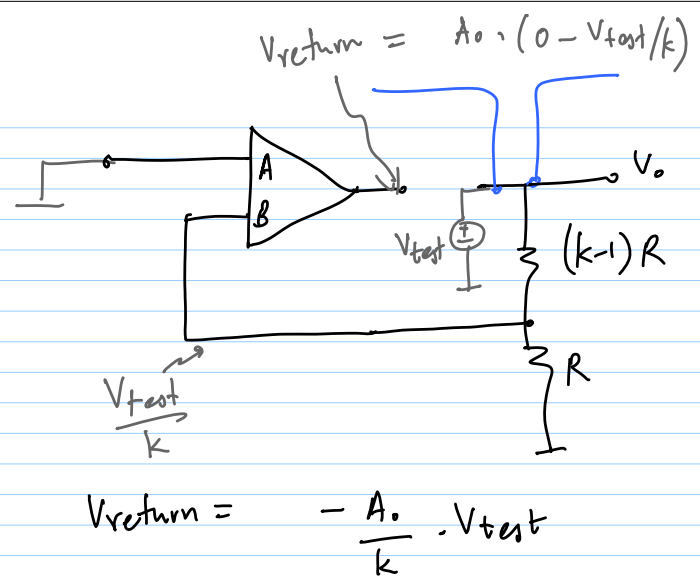 Vreturn = A₀ . (0 - Vtest/k)
A
B
V₀
Vtest
(k-1) R
R
Vtest/k
Vreturn = - A₀/k . Vtest